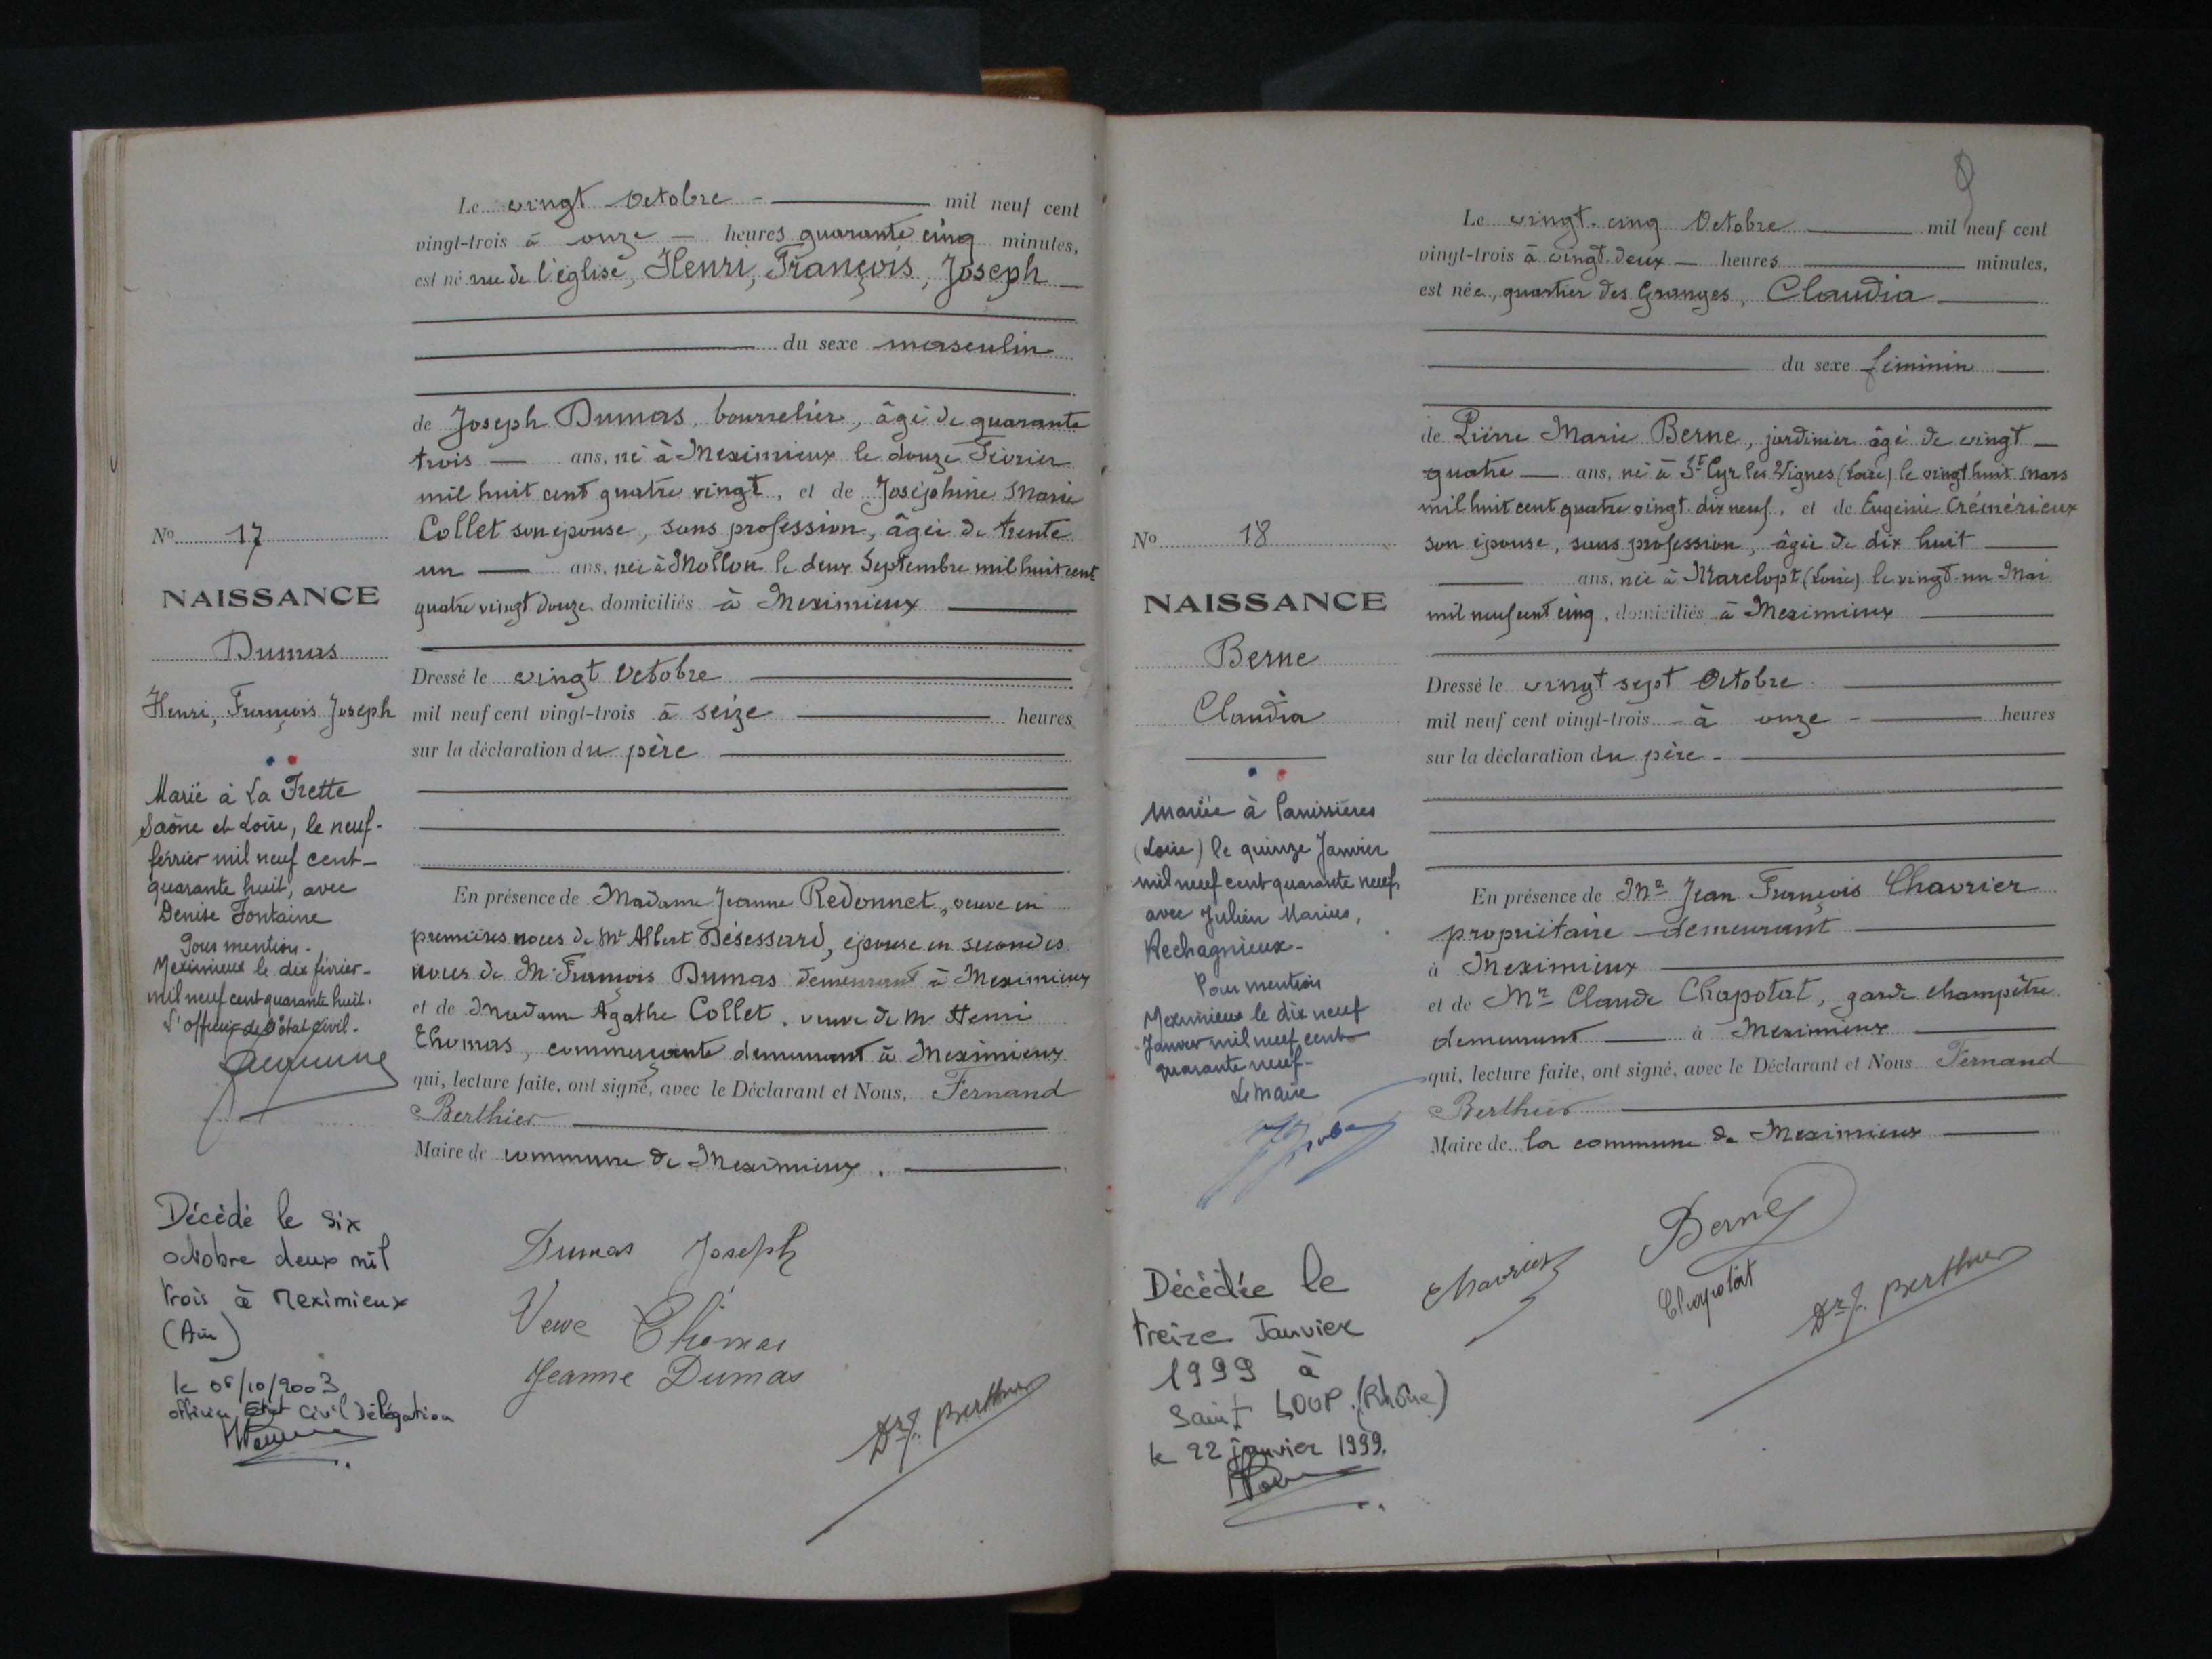 Le vingt Octobre - mil neuf cent
vingt-trois à onze - heures quarante cinq minutes,
est né rue de l'église, Henri, François, Joseph
du sexe masculin
de Joseph Dumas, bourrelier, âgé de quarante
trois ans, né à Meximieux le douze Février
mil huit cent quatre vingt, et de Joséphine Marie
Collet son épouse, sans profession, âgée de trente
un ans, née à Mollon le deux Septembre mil huit cent
quatre vingt douze domiciliés à Meximieux
Dressé le vingt Octobre
mil neuf cent vingt-trois à seize heures
sur la déclaration du père
En présence de Madame Jeanne Redonnet, veuve en
premières noces de Mr Albert Désessard, épouse en secondes
noces de Mr François Dumas demeurant à Meximieux
et de Madame Agathe Collet, veuve de Mr Henri
Thomas, commerçante demeurant à Meximieux
qui, lecture faite, ont signé, avec le Déclarant et Nous, Fernand
Berthier
Maire de commune de Meximieux.
Dumas Joseph
Veuve Thomas
Jeanne Dumas
Dr F. Berthier
No 17
NAISSANCE
Dumas
Henri, François Joseph
Marié à La Frette
Saône et Loire, le neuf-
février mil neuf cent-
quarante huit, avec
Denise Fontaine
Pour mention.
Meximieux le dix février-
mil neuf cent quarante huit.
L'officier de l'état civil.
Décédé le six
octobre deux mil
trois à Meximieux
(Ain)
le 06/10/2003
officier Etat Civil Délégation
9
Le vingt-cinq Octobre mil neuf cent
vingt-trois à vingt-deux - heures minutes,
est née, quartier des Granges, Claudia
du sexe féminin
de Pierre Marie Berne, jardinier âgé de vingt
quatre ans, né à St Cyr les Vignes (Loire) le vingt huit Mars
mil huit cent quatre vingt-dix neuf, et de Eugénie Crémérieux
son épouse, sans profession, âgée de dix huit
ans, née à Marclopt (Loire) le vingt-un Mai
mil neuf cent cinq, domiciliés à Meximieux
Dressé le vingt sept Octobre
mil neuf cent vingt-trois à onze - heures
sur la déclaration du père -
En présence de Mr Jean François Chavrier
propriétaire demeurant
à Meximieux
et de Mr Claude Chapotat, garde champêtre
demeurant à Meximieux
qui, lecture faite, ont signé, avec le Déclarant et Nous Fernand
Berthier
Maire de la commune de Meximieux
Berne
Chavrier
Chapotat
Dr F. Berthier
No 18
NAISSANCE
Berne
Claudia
Mariée à Panissières
(Loire) le quinze Janvier
mil neuf cent quarante neuf,
avec Julien Marius,
Rechagnieux-
Pour mention
Meximieux le dix neuf
Janvier mil neuf cent
quarante neuf-
Le Maire
Décédée le
treize Janvier
1999 à
Saint LOUP. (Rhône)
le 22 janvier 1999.